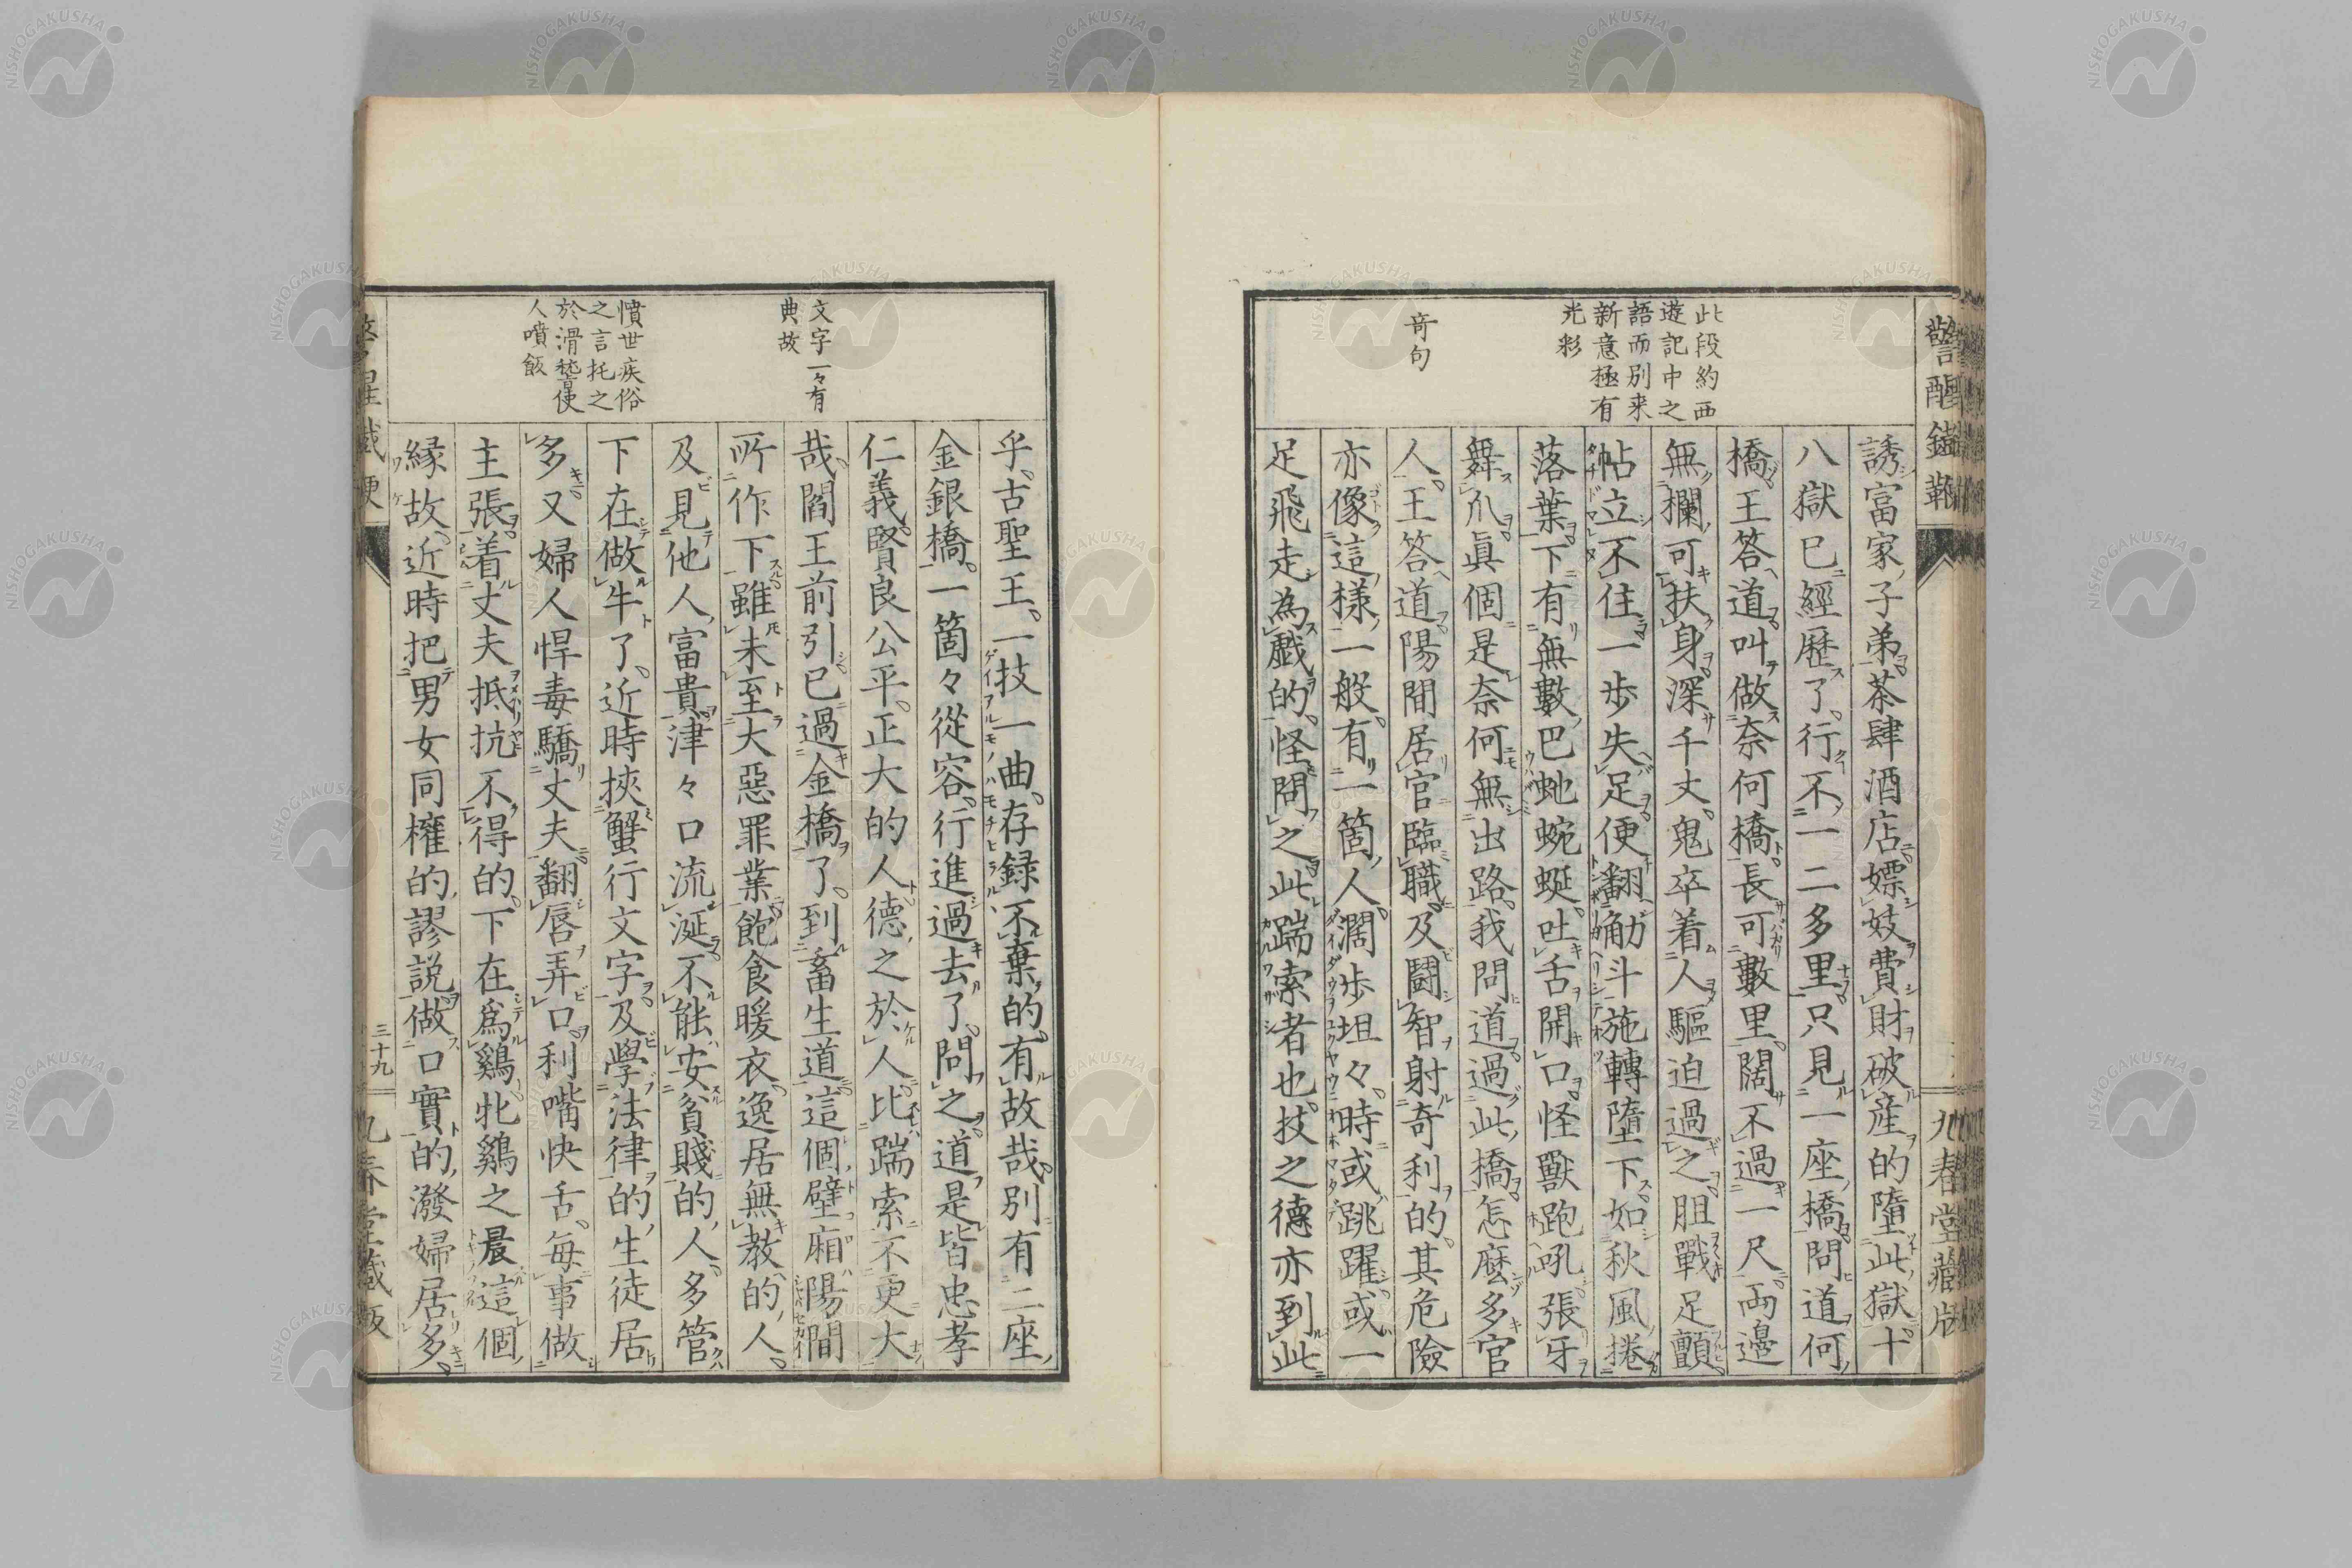 警醒鐵鞭
九春堂藏版
此段約西
遊記中之
語而別来
新意極有
光彩
奇句
誘富家子弟茶肆酒店嫖妓費財破産的墮此獄十
八獄已經歷了行不一二多里只見一座橋問道何
橋王答道叫做奈何橋長可數里闊不過一尺両邉
無欄可扶身深千丈鬼卒着人驅迫過之胆戰足顫
帖立不住一歩失足便翻觔斗施轉墮下如秋風捲
落葉下有無數巴虵蜿蜒吐舌開口怪獸跑吼張牙
舞爪眞個是奈何無出路我問道過此橋怎麽多官
人王答道陽間居官臨職及鬪智射奇利的其危險
亦像這樣一般有一箇人濶歩坦々時或跳躍或一
足飛走為戲的怪問之此踹索者也技之德亦到此
文字一々有
典故
憤世疾俗
之言托之
於滑稽使
人噴飯
乎古聖王一技一曲存録不棄的有故哉別有二座
金銀橋一箇々從容行進過去了問之道是皆忠孝
仁義賢良公平正大的人德之於人比踹索不更大
哉閻王前引已過金橋了到畜生道這個壁廂陽間
所作下雖未至大惡罪業飽食暖衣逸居無教的人
及見他人富貴津々口流涎不能安貧賤的人多管
下在做牛了近時挾蟹行文字及學法律的生徒居
多又婦人悍毒驕丈夫翻唇弄口利嘴快舌毎事做
主張着丈夫抵抗不得的下在爲鷄牝鷄之晨這個
縁故近時把男女同權的謬説做口實的潑婦居多
三十九
九春堂藏版